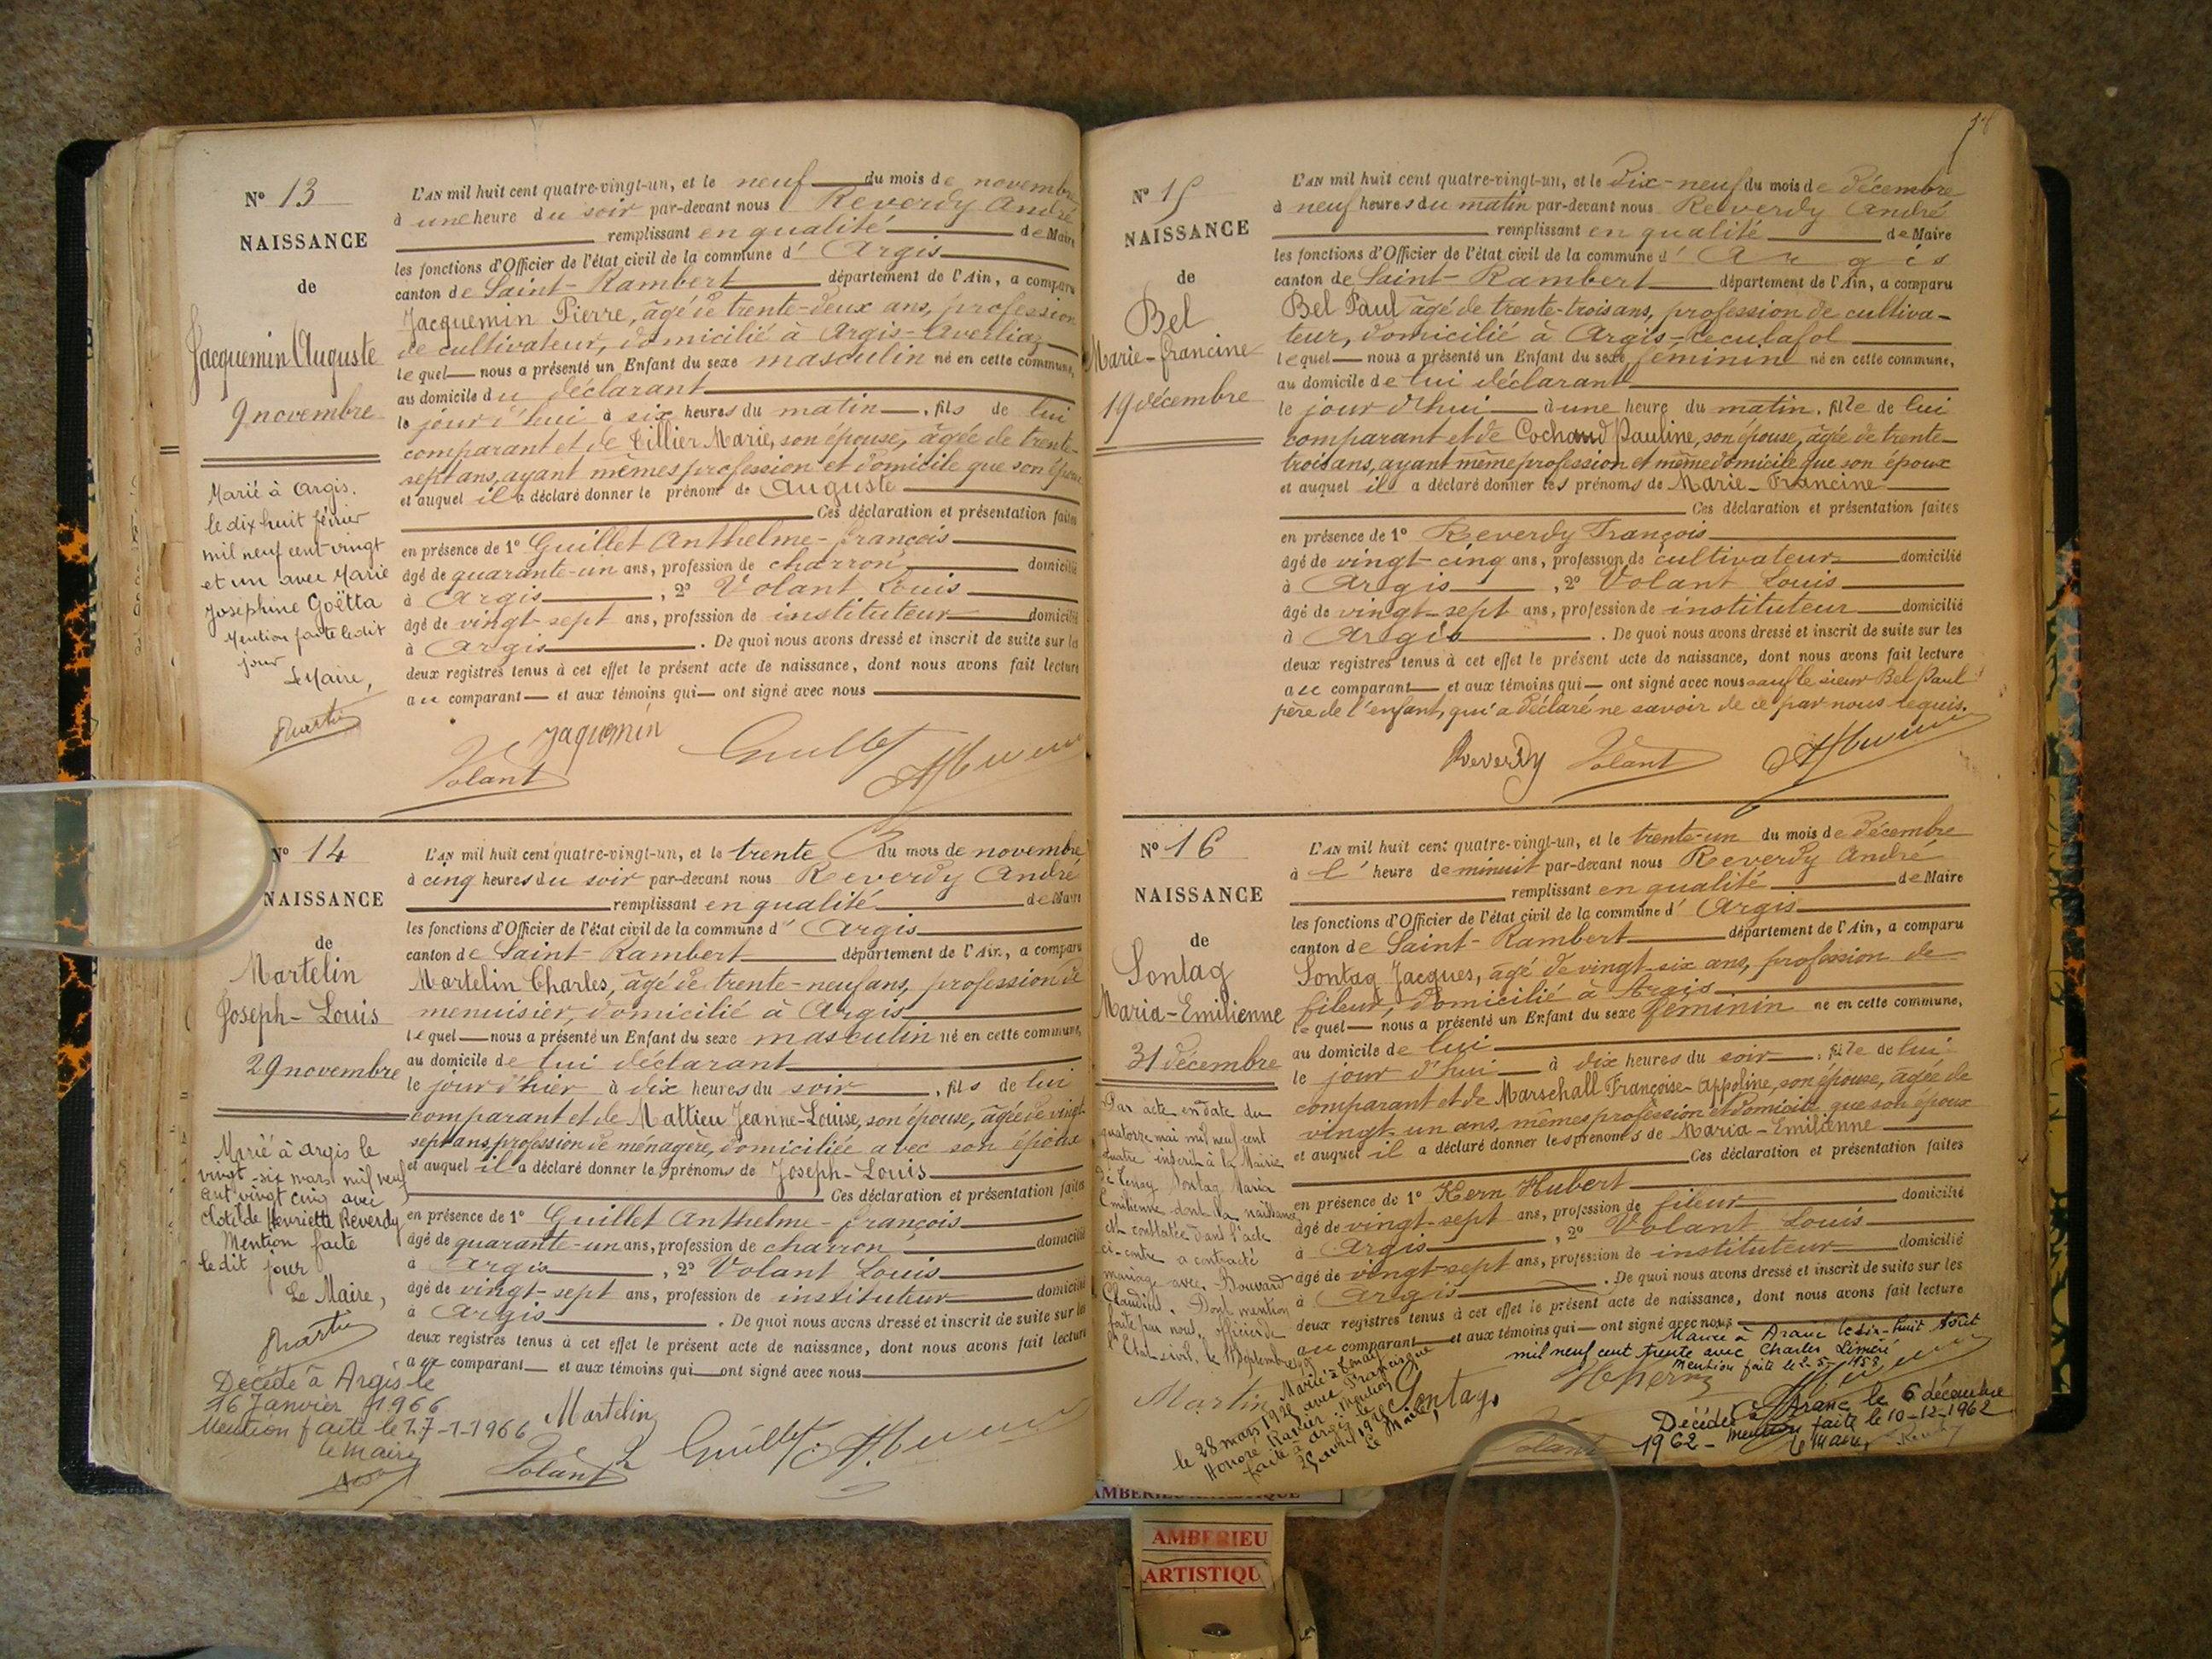 N° 13
NAISSANCE
de
Jacquemin Auguste
9 novembre
Marié à Argis,
le dix huit février
mil neuf cent vingt
et un avec Marie
Joséphine Goëtta
Mention faite ledit
jour
Le Maire,
L'AN mil huit cent quatre-vingt-un, et le neuf du mois de novembre
à une heure du soir par-devant nous Reverdy André
remplissant en qualité de Maire
les fonctions d'Officier de l'état civil de la commune d'Argis
canton de Saint-Rambert département de l'Ain, a comparu
Jacquemin Pierre, âgé de trente-deux ans, profession
de cultivateur, domicilié à Argis-Averliaz
lequel nous a présenté un Enfant du sexe masculin né en cette commune,
au domicile du déclarant
le jour d'hui à six heures du matin, fils de lui
comparant et de Tillier Marie, son épouse, âgée de trente-
sept ans, ayant mêmes profession et domicile que son époux
et auquel il a déclaré donner le prénom de Auguste
Ces déclaration et présentation faites
en présence de 1° Guillet Anthelme-françois
âgé de quarante-un ans, profession de charron, domicilié
à Argis, 2° Volant Louis
âgé de vingt-sept ans, profession de instituteur domicilié
à Argis. De quoi nous avons dressé et inscrit de suite sur les
deux registres tenus à cet effet le présent acte de naissance, dont nous avons fait lecture
au comparant et aux témoins qui ont signé avec nous
Jaquemin Guillet
Volant
N° 14
NAISSANCE
de
Martelin
Joseph-Louis
29 novembre
Marié à Argis le
vingt-six mars mil neuf
cent vingt cinq avec
Clotilde Henriette Reverdy
Mention faite
le dit jour
Le Maire,
Décédé à Argis le
16 Janvier 1966
Mention faite le 17-1-1966
le maire
L'AN mil huit cent quatre-vingt-un, et le trente du mois de novembre
à cinq heures du soir par-devant nous Reverdy André
remplissant en qualité de Maire
les fonctions d'Officier de l'état civil de la commune d'Argis
canton de Saint-Rambert département de l'Ain, a comparu
Martelin Charles, âgé de trente-neuf ans, profession de
menuisier, domicilié à Argis
lequel nous a présenté un Enfant du sexe masculin né en cette commune,
au domicile de lui déclarant
le jour d'hier à dix heures du soir, fils de lui
comparant et de Mattieu Jeanne-Louise, son épouse, âgée de vingt-
sept ans, profession de ménagère, domiciliée avec son époux
et auquel il a déclaré donner les prénoms de Joseph-Louis
Ces déclaration et présentation faites
en présence de 1° Guillet Anthelme-françois
âgé de quarante-un ans, profession de charron, domicilié
à Argis, 2° Volant Louis
âgé de vingt-sept ans, profession de instituteur domicilié
à Argis. De quoi nous avons dressé et inscrit de suite sur les
deux registres tenus à cet effet le présent acte de naissance, dont nous avons fait lecture
au comparant et aux témoins qui ont signé avec nous
Martelin
Volant Guillet
N° 15
NAISSANCE
de
Bel
Marie-francine
19 décembre
L'AN mil huit cent quatre-vingt-un, et le dix-neuf du mois de décembre
à neuf heures du matin par-devant nous Reverdy André
remplissant en qualité de Maire
les fonctions d'Officier de l'état civil de la commune d'Argis
canton de Saint-Rambert département de l'Ain, a comparu
Bel Paul âgé de trente-trois ans, profession de cultiva-
teur, domicilié à Argis-Reculafol
lequel nous a présenté un Enfant du sexe féminin né en cette commune,
au domicile de lui déclarant
le jour d'hui à une heure du matin, fille de lui
comparant et de Cochaud Pauline, son épouse, âgée de trente-
trois ans, ayant même profession et même domicile que son époux
et auquel il a déclaré donner les prénoms de Marie-Francine
Ces déclaration et présentation faites
en présence de 1° Reverdy François
âgé de vingt-cinq ans, profession de cultivateur domicilié
à Argis, 2° Volant Louis
âgé de vingt-sept ans, profession de instituteur domicilié
à Argis. De quoi nous avons dressé et inscrit de suite sur les
deux registres tenus à cet effet le présent acte de naissance, dont nous avons fait lecture
au comparant et aux témoins qui ont signé avec nous sauf le sieur Bel Paul
père de l'enfant, qui a déclaré ne savoir de ce par nous requis.
Reverdy Volant
N° 16
NAISSANCE
de
Sontag
Maria-Emilienne
31 décembre
Par acte en date du
quatorze mai mil neuf cent
quatre inscrit à la Mairie
de Tenay Sontag Maria
Emilienne dont la naissance
est constatée dans l'acte
ci-contre a contracté
mariage avec Bouvard
Claudius. Dont mention
faite par nous, officier de
l'Etat civil, le septembre
L'AN mil huit cent quatre-vingt-un, et le trente-un du mois de décembre
à l'heure de minuit par-devant nous Reverdy André
remplissant en qualité de Maire
les fonctions d'Officier de l'état civil de la commune d'Argis
canton de Saint-Rambert département de l'Ain, a comparu
Sontag Jacques, âgé de vingt-six ans, profession de
fileur, domicilié à Argis
lequel nous a présenté un Enfant du sexe féminin né en cette commune,
au domicile de lui
le jour d'hui à dix heures du soir, fille de lui
comparant et de Marschall Françoise-Appoline, son épouse, âgée de
vingt-un ans, mêmes profession et domicile que son époux
et auquel il a déclaré donner les prénoms de Maria-Emilienne
Ces déclaration et présentation faites
en présence de 1° Kern Hubert
âgé de vingt-sept ans, profession de fileur domicilié
à Argis, 2° Volant Louis
âgé de vingt-sept ans, profession de instituteur domicilié
à Argis. De quoi nous avons dressé et inscrit de suite sur les
deux registres tenus à cet effet le présent acte de naissance, dont nous avons fait lecture
au comparant et aux témoins qui ont signé avec nous
Mariée à Aranc le dix-huit Août
mil neuf cent trente avec Charles
Mention faite le
Martin
Mariée à Tenay
le 28 mars 1921 avec Francisque
Honoré Ravier. Mention
faite à Argis le
Le Maire,
Sontag
Volant
Décédée à Aranc le 6 décembre
1962 - mention faite le 10-12-1962
le Maire,
AMBERIEU
ARTISTIQU